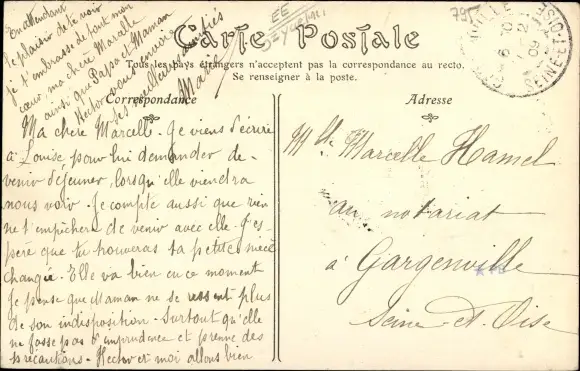 Carte Postale
Tous les pays étrangers n'acceptent pas la correspondance au recto.
Se renseigner à la poste.
Correspondance
Adresse
Ma chère Marcelle. Je viens d'écrire
à Louise pour lui demander de
venir déjeuner, lorsqu'elle viendra
nous voir. Je compte aussi que rien
ne t'empêchera de venir avec elle. J'es-
père que tu trouveras ta petite nièce
changée. Elle va bien en ce moment
Je pense que Maman ne se ressent plus
de son indisposition. Surtout qu'elle
ne fasse pas d'imprudence et prenne des
précautions. Hector et moi allons bien
En attendant
le plaisir de te voir
je t'embrasse de tout mon
cœur ma chère Marcelle
ainsi que Papa et Maman
Hector vous envoie
ses meilleures amitiés
Marie
Mlle Marcelle Hamel
au notariat
à Gargenville
Seine-et-Oise
795